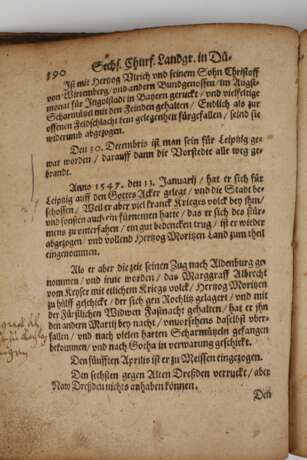 390
Sechs. Churf. Landgr. in Dü-
Ist mit Hertzog Ulrich vnd seinem Sohn Christoff
von Wirtemberg / vnd andern Bundgenossen / im Augst-
monat für Ingolstadt in Bayern geruckt / vnd vielfeltige
Scharmützel mit den Feinden gehalten / Endlich als zur
offenen Feldschlacht kein gelegenheit fürgefallen / seind sie
widerumb abgezogen.
Den 30. Decembris ist man sein für Leipzig ge-
war worden / darauff dann die Vorstedte alle weg ge-
brandt.
Anno 1547. den 13. Januarij / hat er sich für
Leipzig auff den Gottes Acker gelegt / vnd die Stadt be-
schossen / Weil er aber viel kranck Kriegs volck bey ihm /
vnd sonsten auch ein fürnemen hatte / das er sich des stür-
mens zu vnterfahen / ein gut bedencken trug / ist er wieder
abgezogen / vnd vollend Hertzog Moritzen Land zum theil
eingenommen.
Als er aber die zeit seinen Zug nach Aldenburg ge-
nommen / vnd inne worden / das Marggraff Albrecht
vom Keyser mit etlichem Kriegs volck / Hertzog Moritzen
zu hülff geschickt / der sich gen Rochlitz gelagert / vnd mit
der Fürstlichen Widwen Faßnacht gehalten / hat er ihn
den andern Martij bey nacht / vnuorsehens daselbst vber-
fallen / vnd nach vielen harten Scharmützeln gefangen
bekommen / vnd nach Gotha in verwarung geschickt.
Den fünfften Aprilis ist er zu Meissen eingezogen.
Den sechsten gegen Alten Dreßden verruckt / aber
Naw Dreßden nichts anhaben können.
Den